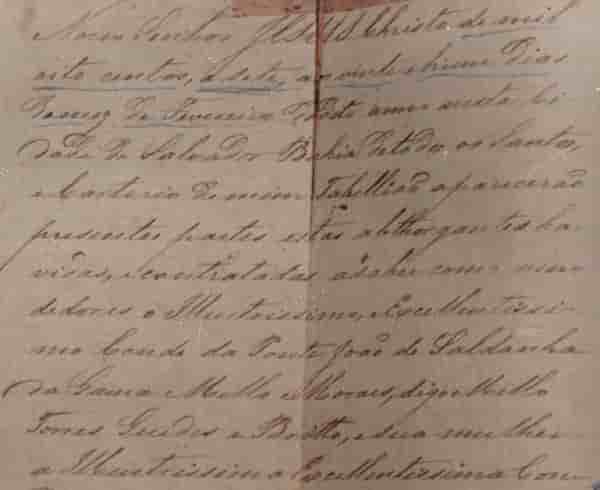 Nosso Senhor JESUS Christo de mil
oito centos, e sete, ao vinte e hum dias
do mez de Fevereiro do dito anno nesta Ci-
dade do Salvador Bahia de todos os Santos,
e Cartorio de mim Tabellião aparecerão
presentes partes estas abthorgantes ha-
vidas, e contratadas á saber como ven-
dedores o Illustrissimo, e Excellentissi-
mo Conde da Ponte João de Saldanha
da Gama Mello e Moraes, digo Mello
Torres Guedes e Britto, e sua mulher
a Illustrissima Excellentissima Con-